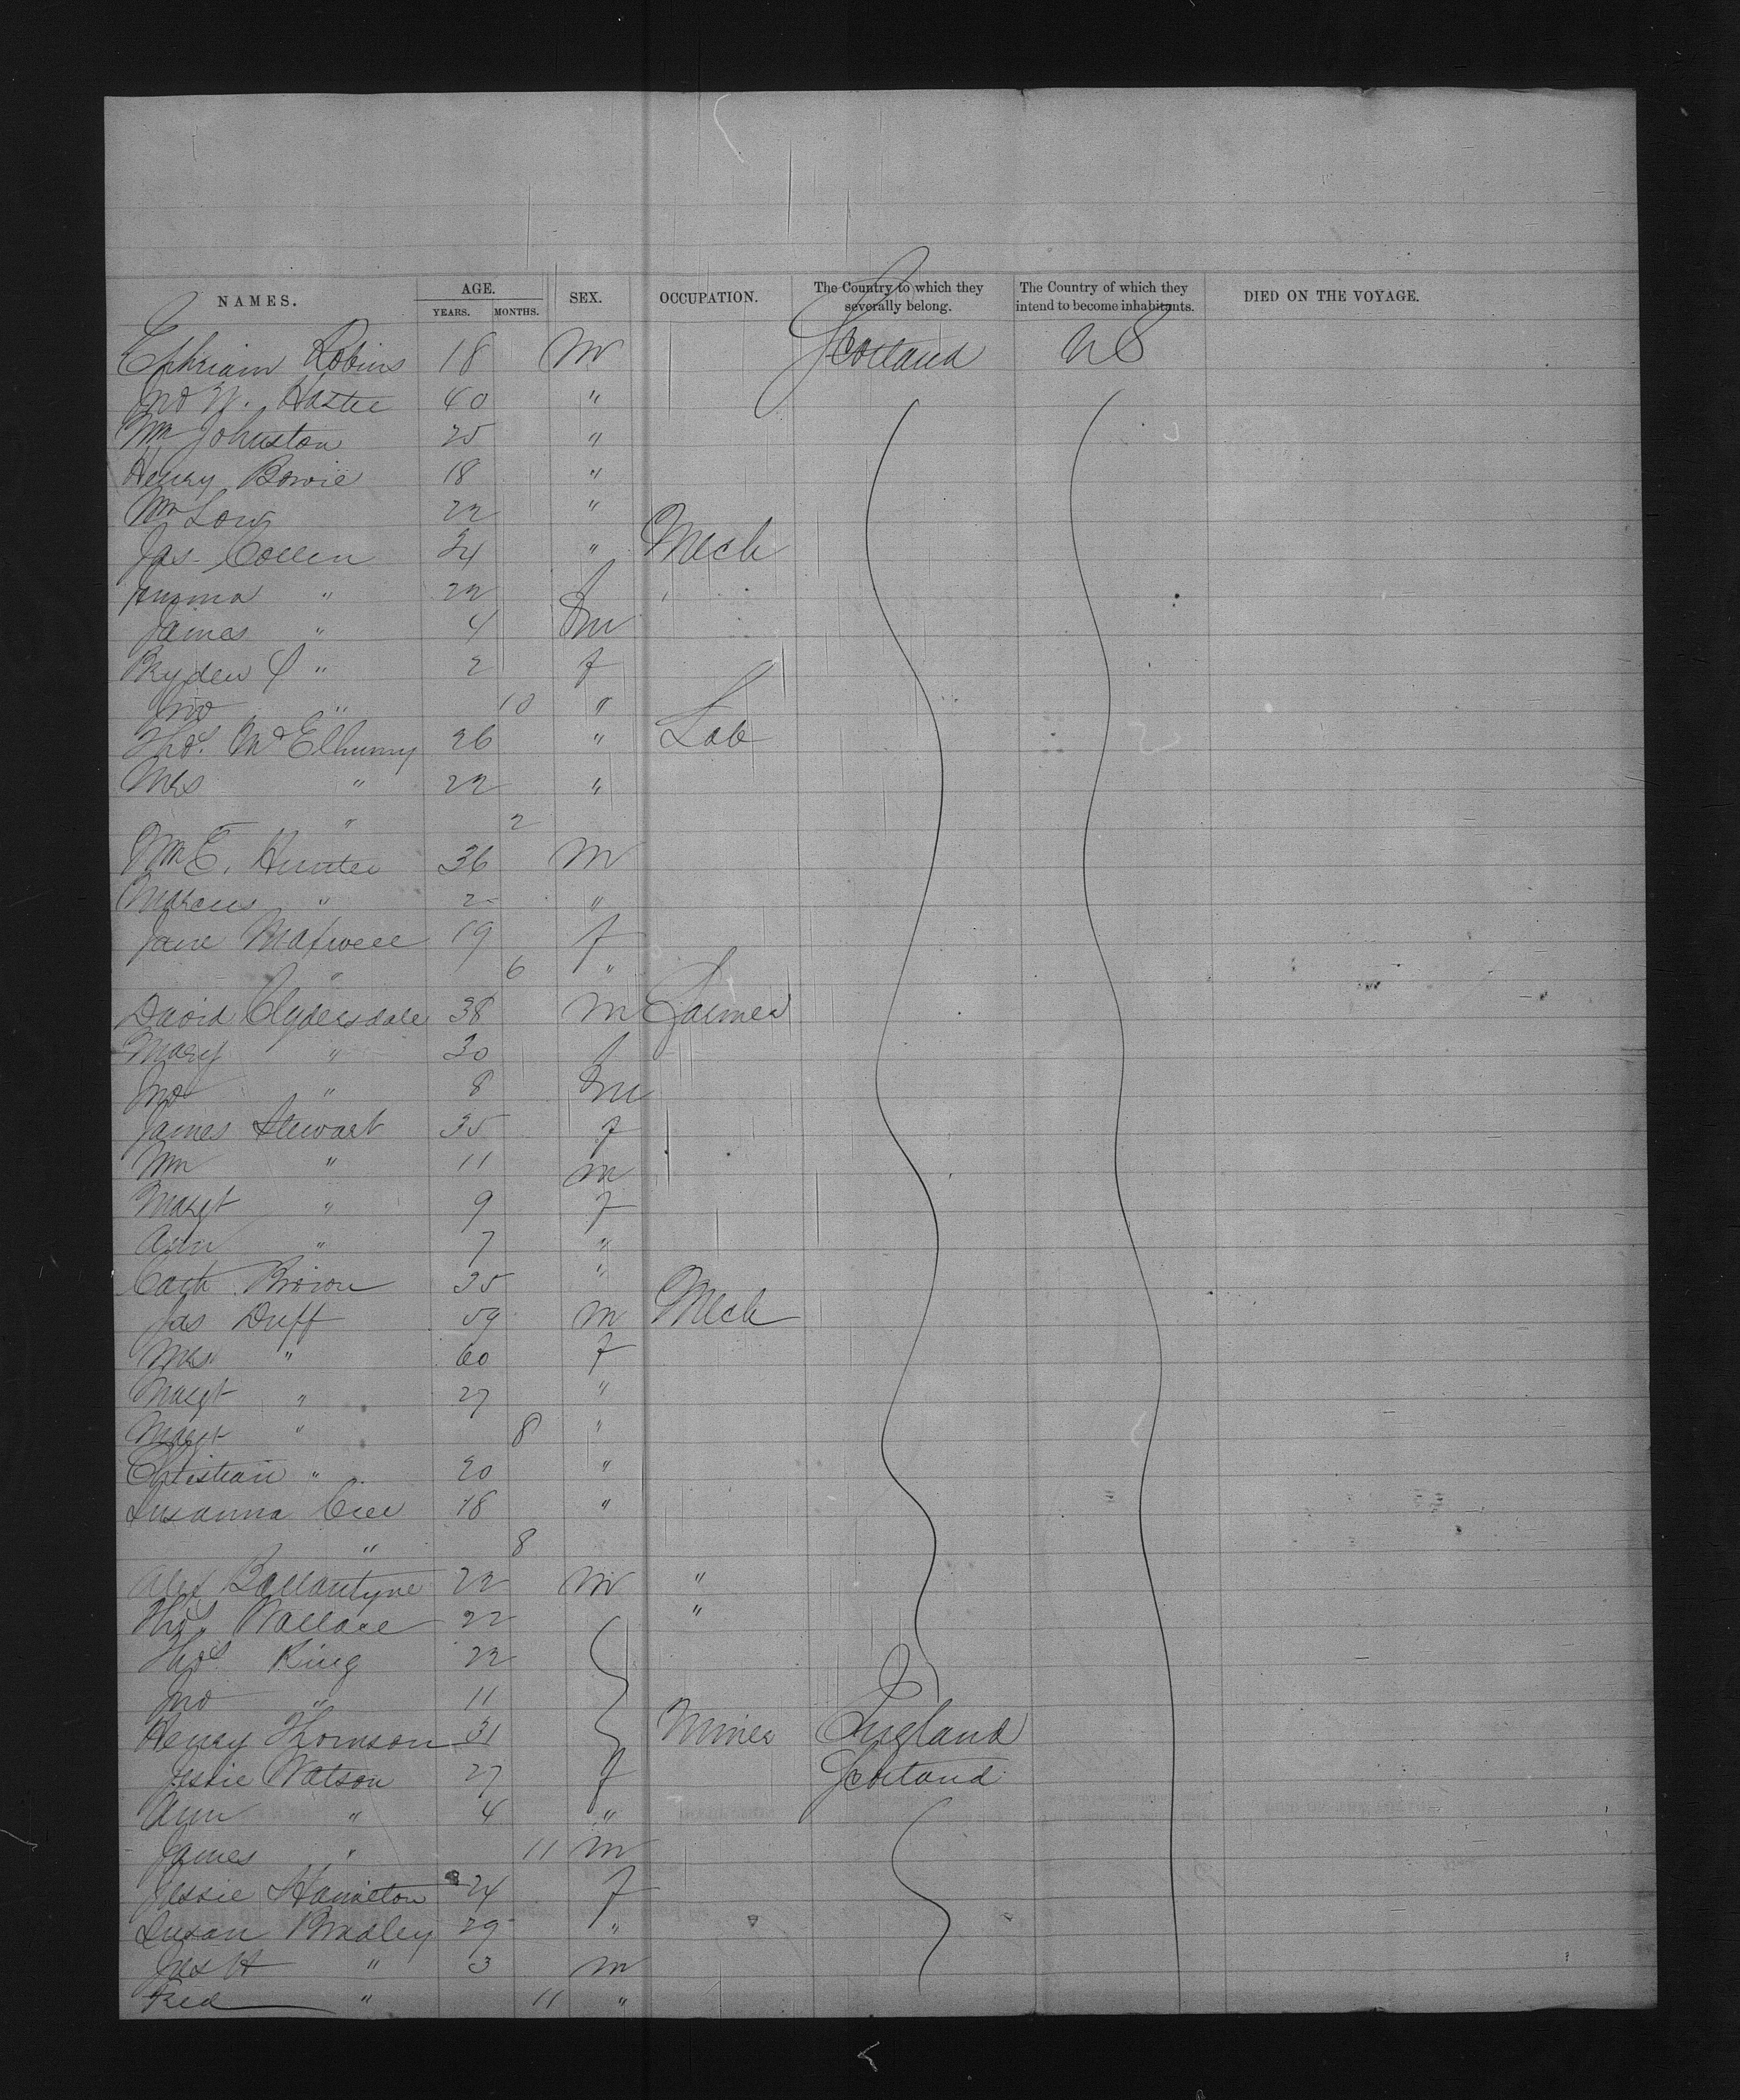 NAMES. AGE. SEX. OCCUPATION. The Country to which they severally belong. The Country of which they intend to become inhabitants. DIED ON THE VOYAGE.
YEARS. MONTHS.
Ephriam Robins 18 M Scotland US
Jno W. Hastie 40 "
Wm Johnston 25 "
Henry Bowie 18 "
Wm Low 22 "
Jas. Collin 24 " Mech
Emma " 22 f
James " 4 m
Bryden " 2 f
Jno " 10 "
Thos. McElhunny 26 " Lab
Mrs " 22 "
" 2
Wm E. Hunter 36 M
Marcus " 2 "
Jane Maxwell 19 f
" 6 "
David Clydersdale 38 M Farmer
Mary " 30 f
Jno " 8 m
James Stewart 35 f
Wm " 11 m
Margt " 9 f
Ann " 7 "
Cath Brown 35 "
Jas Duff 59 m Mech
Mrs " 60 f
Margt " 27 "
Margt " 8 "
Christian " 20 "
Susanna 18 "
" 8
Alex Ballantyne 22 M "
Thos. Wallace 22 "
Thos. King 22
Jno " 11
Henry Thomson 31 Miner England
Jessie Watson 27 f Scotland
Ann " 4 "
James " 11 m
Jessie Hamilton 24 f
Susan Bradley 29 "
Jas H " 3 m
Fred " 11 "